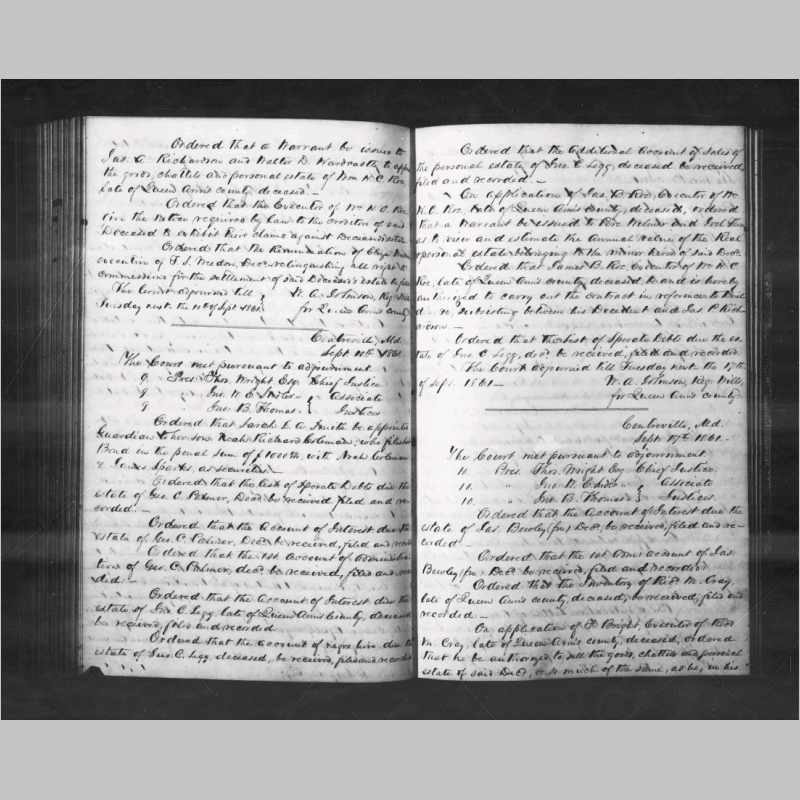 Ordered that a Warrant be issued to
Jas. A. Richardson and Walter D. Hardcastle to appr
the goods, chattels and personal estate of Wm H. C. Roe,
late of Queen Ann's county, deceased.
Ordered that the Executor of Wm H. C. Roe
give the notice required by Law to the creditors of said
Deceased to exhibit their claims against Deceased's estate
Ordered that the Renunciation of
executrix of T. S. Dec'd relinquishing all right to
commissions for the settlement of said Deceased's estate be
The Court adjourned till } W. A. Johnson, Reg. Wills
Tuesday next the 10th of Sept 1861. for Queen Ann's County
Centreville, Md.
Sept. 10th 1861.
The Court met pursuant to adjournment
9 Pres. Thos. Wright Esq. Chief Justice
9 " Jno. W. E. } Associate
9 " Jno. B. Thomas. } Justices
Ordered that Sarah E. A. Smith be appointed
Guardian to her son Noah Richard Coleman; who files her
Bond in the penal sum of $1000.00, with Noah Coleman
& James Sparks, as securities.
Ordered that the List of Sperate Debts due the
estate of Geo. C. Palmer, Dec'd be received, filed and re-
corded.
Ordered that the Account of Interest due the
estate of Geo. C. Palmer, Dec'd, be received, filed and record
Ordered that the 1st Account of Administra
tion of Geo. C. Palmer, dec'd, be received, filed and recor
ded.
Ordered that the Account of Interest due the
estate of Jno. C. Legg late of Queen Ann's County, deceased
be received, filed and recorded
Ordered that the account of negro hire due the
estate of Jno. C. Legg, deceased, be received, filed and recorded
Ordered that the additional Account of Sales of
the personal estate of Jno. C. Legg, deceased be received,
filed and recorded.
On application of Jas. B. Roe, Executor of Wm
H. C. Roe, late of Queen Ann's County, deceased, ordered
that a Warrant be issued to and
as to view and estimate the annual value of the Real
personal estate belonging to the minor heirs of said Dec'd
Ordered that James B. Roe, Executor of Wm H. C.
Roe, late of Queen Ann's county, deceased be and is hereby
authorized to carry out the contract in reference to
subsisting between his Decedent and Jas. P. Rich
ardson.
Ordered that the List of Sperate Debts due the es-
tate of Jno. C. Legg, dec'd be received, filed and recorded.
The Court adjourned till Tuesday next the 17th
of Sept. 1861. W. A. Johnson, Reg. Wills,
for Queen Ann's county.
Centreville, Md.
Sept. 17th 1861.
The Court met pursuant to adjournment
10. Pres. Thos. Wright Esq. Chief Justice.
10. " Jno. W. E. } Associate
10. " Jno. B. Thomas } Justices.
Ordered that the Account of Interest due the
estate of Jas. Bewley (fn) Dec'd, be received, filed and re-
corded.
Ordered that the 1st Adms account of Jas.
Bewley (fn) Dec'd, be received, filed and recorded.
Ordered that the Inventory of M. Cray,
late of Queen Ann's county, deceased, be received, filed and
recorded.
On application of Bright, Executor of
M. Cray, late of Queen Ann's county, deceased, ordered
that he be authorized to sell the goods, chattels and personal
estate of said Dec'd, or so much of the same, as be, in his